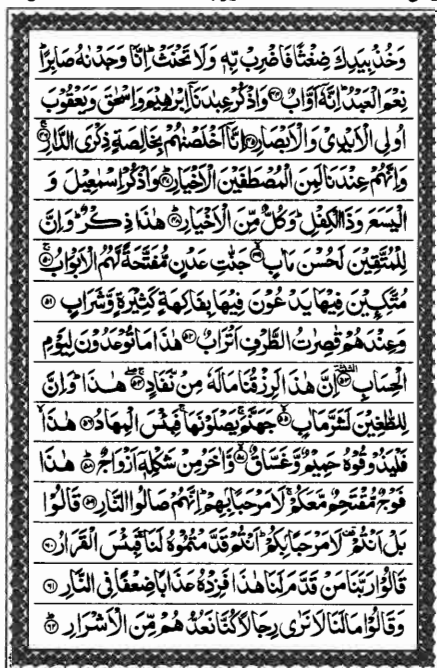 وَخُذْ بِيَدِكَ ضِغْثًا فَاضْرِبْ بِّهٖ وَلَا تَحْنَثْ ؕ اِنَّا وَجَدْنٰهُ صَابِرًا ؕ
نِعْمَ الْعَبْدُ ؕ اِنَّهٗۤ اَوَّابٌ ﴿۴۴﴾ وَاذْكُرْ عِبٰدَنَاۤ اِبْرٰهِيْمَ وَاِسْحٰقَ وَيَعْقُوْبَ
اُولِى الْاَيْدِىْ وَالْاَبْصَارِ ﴿۴۵﴾ اِنَّاۤ اَخْلَصْنٰهُمْ بِخَالِصَةٍ ذِكْرَى الدَّارِ ﴿۴۶﴾
وَاِنَّهُمْ عِنْدَنَا لَمِنَ الْمُصْطَفَيْنَ الْاَخْيَارِ ﴿۴۷﴾ وَاذْكُرْ اِسْمٰعِيْلَ وَ
الْيَسَعَ وَذَا الْكِفْلِ ؕ وَكُلٌّ مِّنَ الْاَخْيَارِ ﴿۴۸﴾ هٰذَا ذِكْرٌ ؕ وَاِنَّ
لِلْمُتَّقِيْنَ لَحُسْنَ مَاٰبٍ ﴿۴۹﴾ جَنّٰتِ عَدْنٍ مُّفَتَّحَةً لَّهُمُ الْاَبْوَابُ ﴿۵۰﴾
مُتَّكِـِٕيْنَ فِيْهَا يَدْعُوْنَ فِيْهَا بِفَاكِهَةٍ كَثِيْرَةٍ وَّشَرَابٍ ﴿۵۱﴾
وَعِنْدَهُمْ قٰصِرٰتُ الطَّرْفِ اَتْرَابٌ ﴿۵۲﴾ هٰذَا مَا تُوْعَدُوْنَ لِيَوْمِ
الْحِسَابِ ﴿۵۳﴾ اِنَّ هٰذَا لَرِزْقُنَا مَا لَهٗ مِنْ نَّفَادٍ ﴿۵۴﴾ هٰذَا ؕ وَاِنَّ
لِلطّٰغِيْنَ لَشَرَّ مَاٰبٍ ﴿۵۵﴾ جَهَنَّمَ ۚ يَصْلَوْنَهَا ۚ فَبِئْسَ الْمِهَادُ ﴿۵۶﴾ هٰذَا ۙ
فَلْيَذُوْقُوْهُ حَمِيْمٌ وَّغَسَّاقٌ ﴿۵۷﴾ وَّاٰخَرُ مِنْ شَكْلِهٖۤ اَزْوَاجٌ ﴿۵۸﴾ هٰذَا
فَوْجٌ مُّقْتَحِمٌ مَّعَكُمْ ۚ لَا مَرْحَبًۢا بِهِمْ ؕ اِنَّهُمْ صَالُوا النَّارِ ﴿۵۹﴾ قَالُوْا
بَلْ اَنْتُمْ لَا مَرْحَبًۢا بِكُمْ ؕ اَنْتُمْ قَدَّمْتُمُوْهُ لَنَا ۚ فَبِئْسَ الْقَرَارُ ﴿۶۰﴾
قَالُوْا رَبَّنَا مَنْ قَدَّمَ لَنَا هٰذَا فَزِدْهُ عَذَابًا ضِعْفًا فِى النَّارِ ﴿۶۱﴾
وَقَالُوْا مَا لَنَا لَا نَرٰى رِجَالًا كُنَّا نَعُدُّهُمْ مِّنَ الْاَشْرَارِ ﴿۶۲﴾